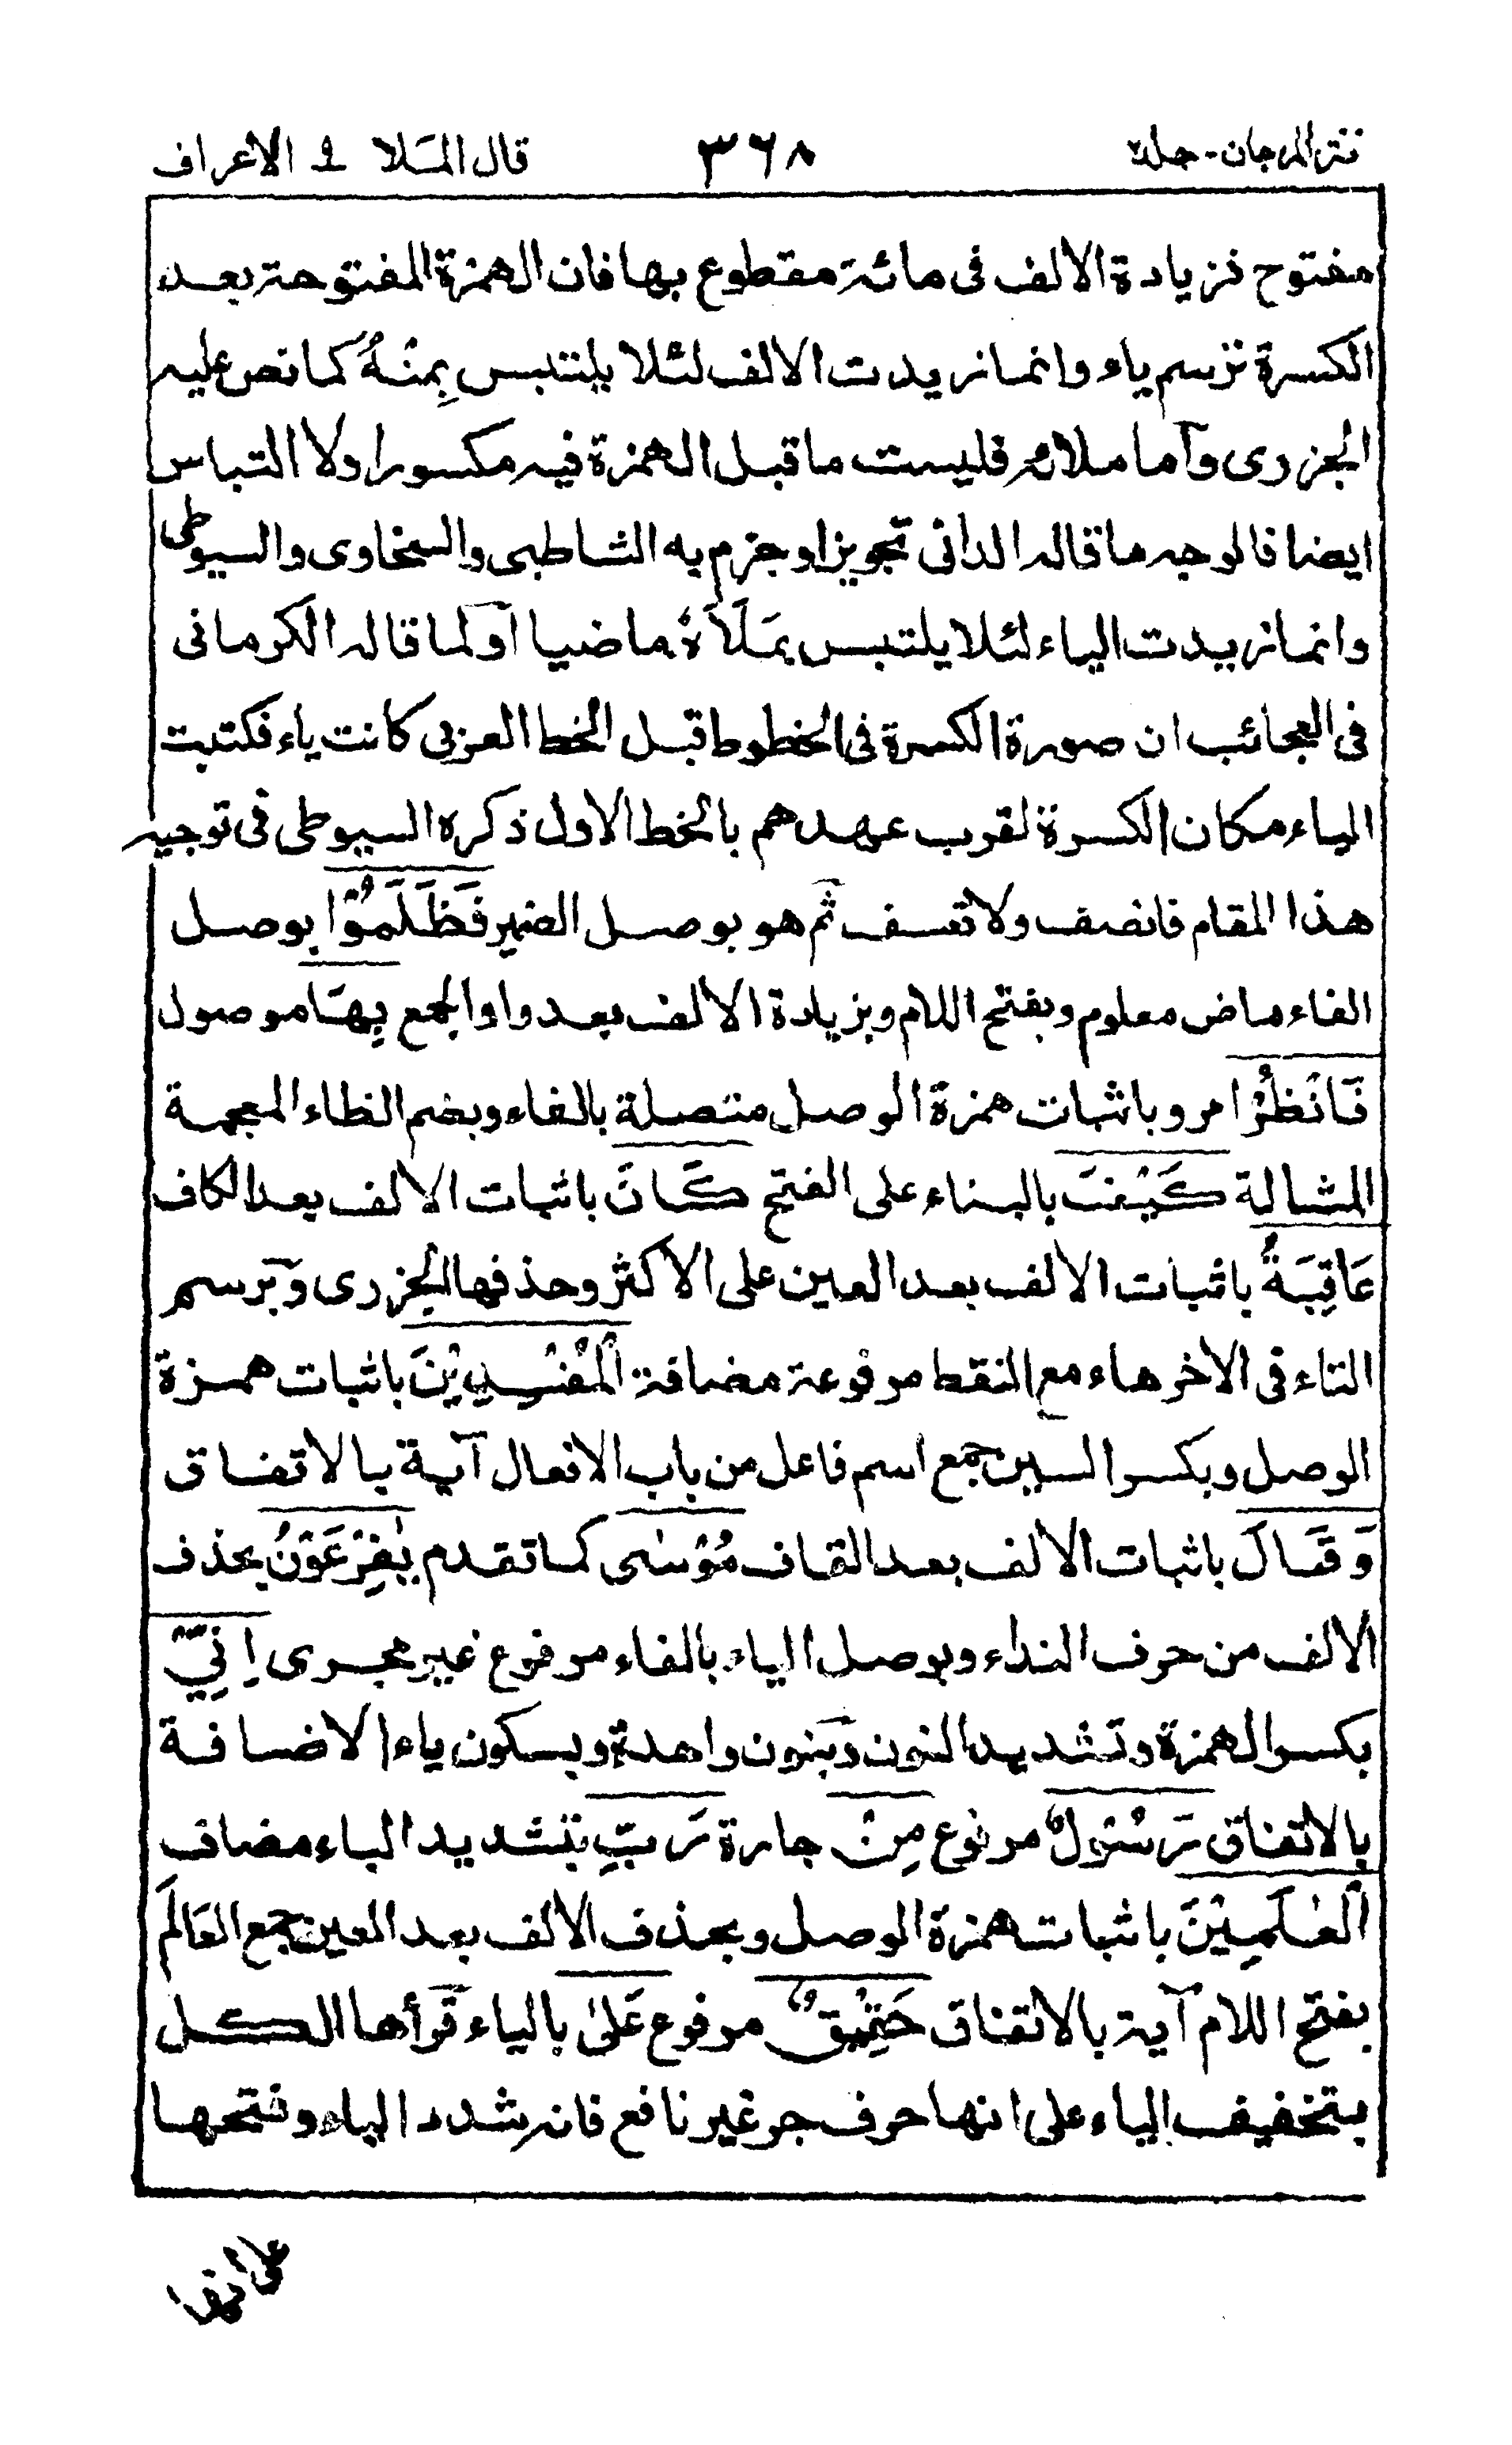 نثر المرجان - جلد ٢
٣٦٨
قال الملا ٩ الاعراف
مفتوح فزيادة الالف فى مائة مقطوع بها فان الهمزة المفتوحة بعد
الكسرة ترسم ياء وانما زيدت الالف لئلا يلتبس بِمِنْهُ كما نص عليه
الجزرى وآما ملائه فليست ما قبل الهمزة فيه مكسورا ولا التباس
ايضا فالوجه ما قاله الدانى تجويزا وجزم به الشاطبى والسخاوى والسيوطى
وانما زيدت الياء لئلا يلتبس بمَلَأَهُ ماضيا آو لما قاله الكرمانى
فى العجائب ان صورة الكسرة فى الخطوط قبل الخط العربى كانت ياء فكتبت
الياء مكان الكسرة لقرب عهدهم بالخط الاول ذكره السيوطى فى توجيه
هذا المقام فانصف ولا تعسف ثم هو بوصل الضمير فَظَلَمُوْا بوصل
الفاء ماض معلوم وبفتح اللام وبزيادة الالف بعد واو الجمع بِهَا موصول
فَانْظُرْ امر وباثبات همزة الوصل متصلة بالفاء وبضم الظاء المعجمة
المشالة كَيْفَ بالبناء على الفتح كَانَ باثبات الالف بعد الكاف
عَاقِبَةُ باثبات الالف بعد العين على الاكثر وحذفها الجزرى وَبرسم
التاء فى الاخر هاء مع النقط مرفوعة مضافة الْمُفْسِدِيْنَ باثبات همزة
الوصل وبكسر السين جمع اسم فاعل من باب الافعال آية بالاتفاق
وَقَالَ باثبات الالف بعد القاف مُوْسٰى كما تقدم يٰفِرْعَوْنُ بحذف
الالف من حرف النداء وبوصل الياء بالفاء مرفوع غير مجرى اِنِّيْ
بكسر الهمزة وتشديد النون وَبنون واحدة وبسكون ياء الاضافة
بالاتفاق رَسُوْلٌ مرفوع مِنْ جارة رَبِّ بتشديد الباء مضاف
الْعٰلَمِيْنَ باثبات همزة الوصل وبحذف الالف بعد العين جمع العَالَم
بفتح اللام آية بالاتفاق حَقِيْقٌ مرفوع عَلٰى بالياء قَرأها الكل
بتخفيف الياء على انها حرف جر غير نافع فانه شدد الياء وفتحها